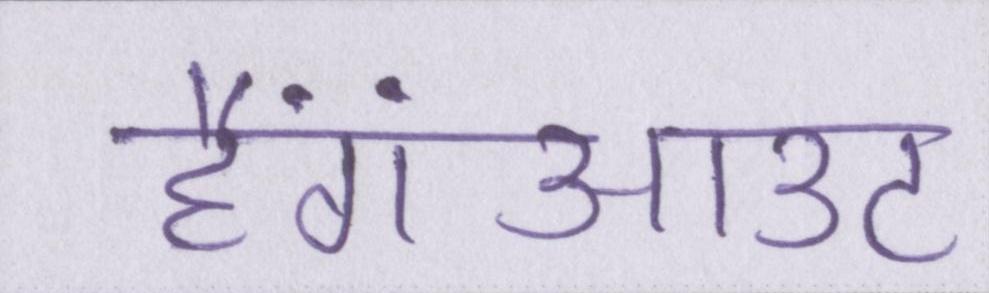 हैंगंआउट